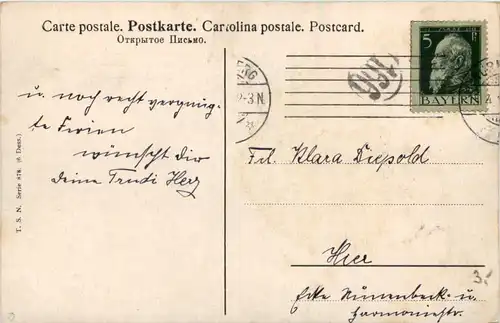 Carte postale. Postkarte. Cartolina postale. Postcard.
Открытое Письмо.
5
BAYERN
2-3.N.
u. noch recht vergnüg-
te Ferien
wünscht dir
deine Trudi Herz
Frl. Klara Diepold
Hier
Ecke u.
Harmoniestr.
3,-
T. S. N. Serie 878. (6 Dess.)